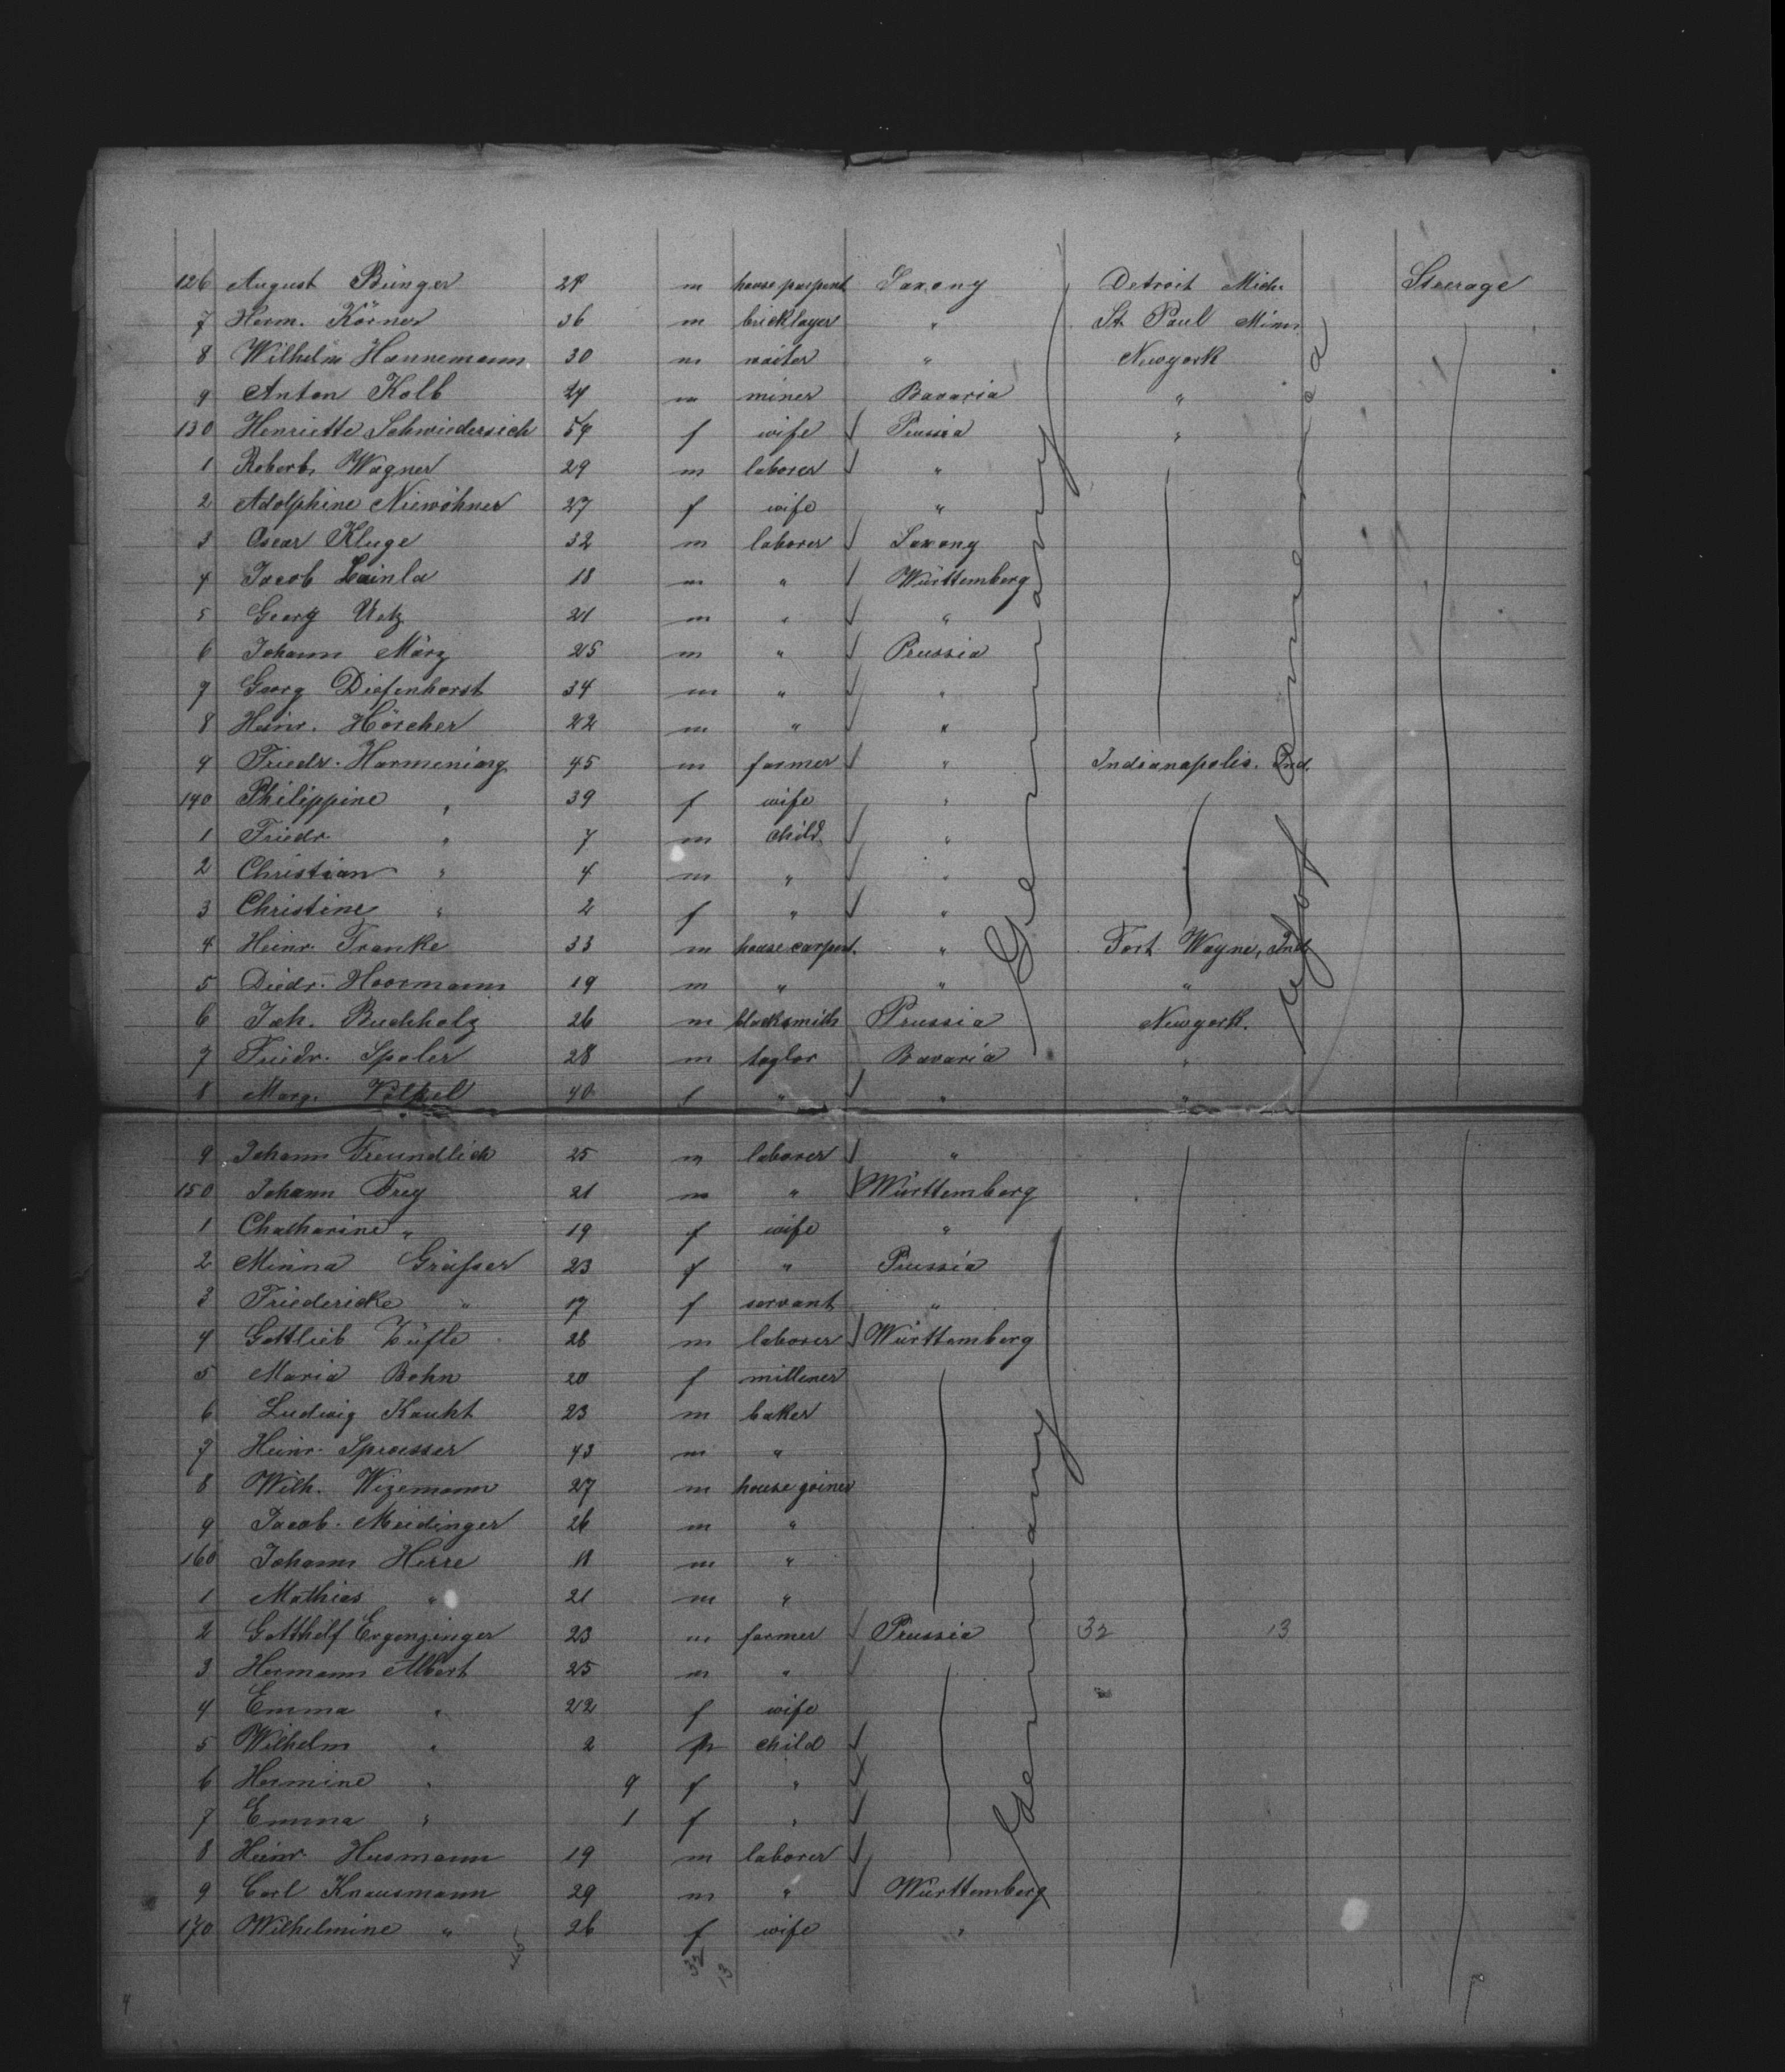 126 August Bünger 28 m house carpent. Saxony Detroit Mich. Steerage
7 Herm. Körner 36 m bricklayer " St. Paul Minn.
8 Wilhelm Hannemann 30 m waiter " Newyork
9 Anton Kolb 24 m miner Bavaria "
130 Henriette Schwiedersich 54 f wife Prussia "
1 Robert Wagner 29 m laborer "
2 Adolphine Niewöhner 27 f wife "
3 Oscar Kluge 32 m laborer Saxony
4 Jacob Lainla 18 m " Württemberg
5 Georg Utz 21 m " "
6 Johann März 25 m " Prussia
7 Georg Diefenhorst 34 m " "
8 Heinr. Hörcher 22 m " "
9 Friedr. Harmening 45 m farmer " Indianapolis. Ind.
140 Philippine " 39 f wife "
1 Friedr. " 7 m child "
2 Christian " 4 m " "
3 Christine " 2 f " "
4 Heinr. Franke 33 m house carpent. " Fort Wayne, Ind.
5 Diedr. Hoormann 19 m " " "
6 Joh. Buchholz 26 m blacksmith Prussia Newyork.
7 Friedr. Speler 28 m taylor Bavaria "
8 Marg. Völkel 40 f " " "
9 Johann Freundlich 25 m laborer "
150 Johann Frey 21 m " Württemberg
1 Chatharine " 19 f wife "
2 Minna Gräfser 23 f " Prussia
3 Friedericke " 17 f servant "
4 Gottlieb Züfle 28 m laborer Württemberg
5 Maria Bohn 20 f milliner
6 Ludwig Kaukt 23 m baker
7 Heinr. Sproesser 43 m "
8 Wilh. Wizemann 27 m house joiner
9 Jacob Meidinger 26 m "
160 Johann Herre 18 m "
1 Mathias " 21 m "
2 Gotthilf Ergenzinger 23 m farmer Prussia 32 13
3 Hermann Albert 25 m "
4 Emma " 22 f wife
5 Wilhelm " 2 m child
6 Hermine " 9 f "
7 Emma " 1 f "
8 Heinr. Husmann 19 m laborer
9 Carl Knausmann 29 m " Württemberg
170 Wilhelmine " 26 f wife "
Germany
Germany
32
13